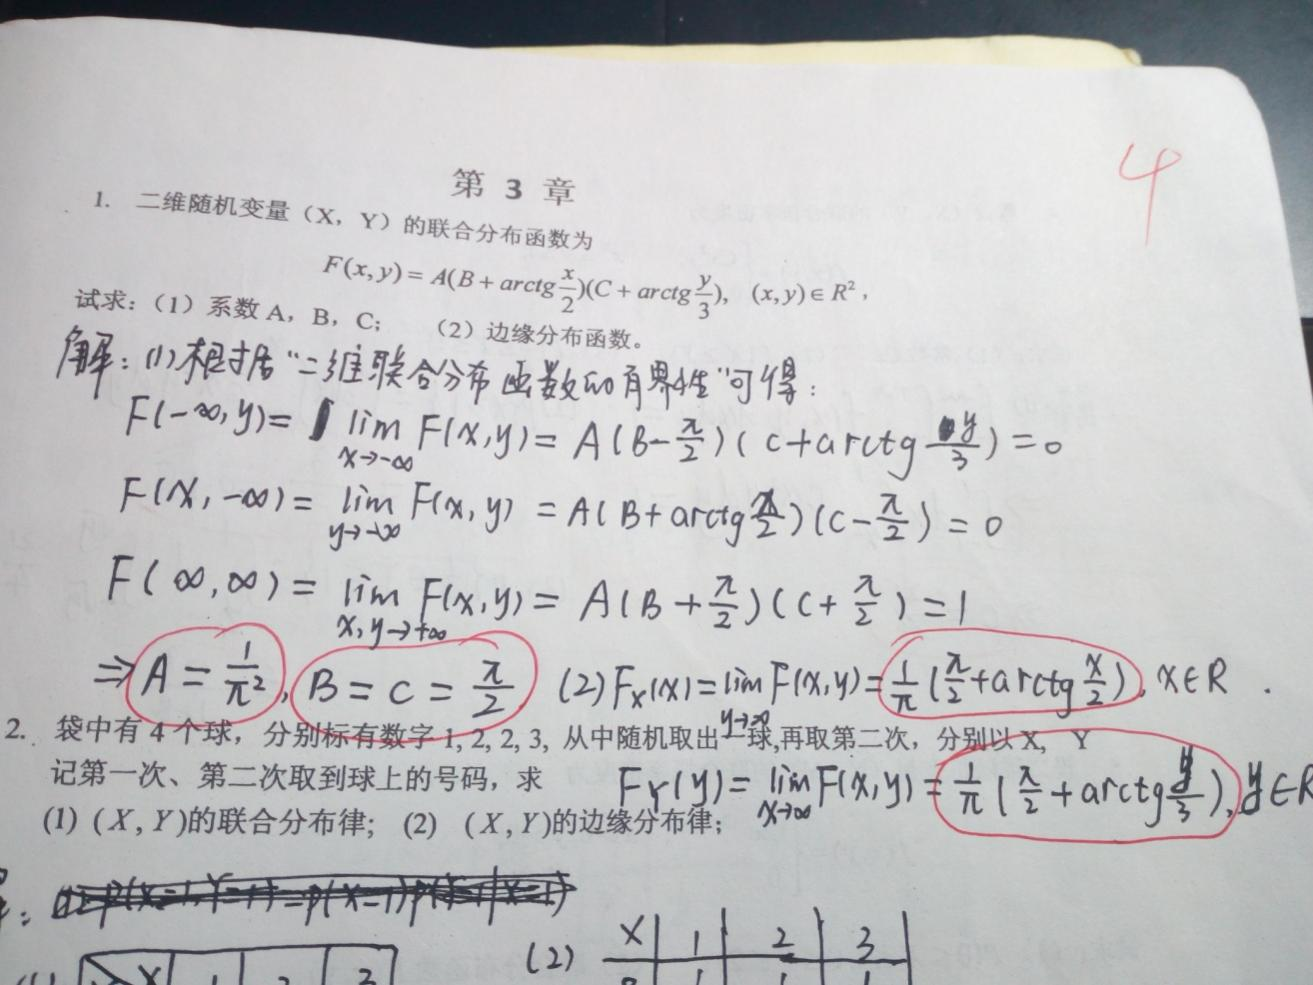 4
第 3 章
1. 二维随机变量（X，Y）的联合分布函数为
F(x,y)= A(B+arctg x/2)(C+arctg y/3), (x,y)∈R²,
试求：（1）系数 A，B，C； （2）边缘分布函数。
解：(1)根据“二维联合分布函数的有界性”可得：
F(-∞,y)= lim x→-∞ F(x,y)= A(B-π/2)(C+arctg y/3)=0
F(x,-∞)= lim y→-∞ F(x,y) = A(B+arctg x/2)(C-π/2)=0
F(∞,∞)= lim x,y→+∞ F(x,y)= A(B+π/2)(C+π/2)=1
⇒ A=1/π², B=C=π/2 (2)F_X(x)=lim y→∞ F(x,y)=1/π(π/2+arctg x/2), x∈R .
2. 袋中有 4 个球，分别标有数字 1, 2, 2, 3, 从中随机取出一球,再取第二次，分别以 X, Y
记第一次、第二次取到球上的号码，求
F_Y(y)=lim x→∞ F(x,y)=1/π(π/2+arctg y/3), y∈R
(1) (X,Y)的联合分布律; (2) (X,Y)的边缘分布律;
(2) X 1 2 3
X 1 2 3